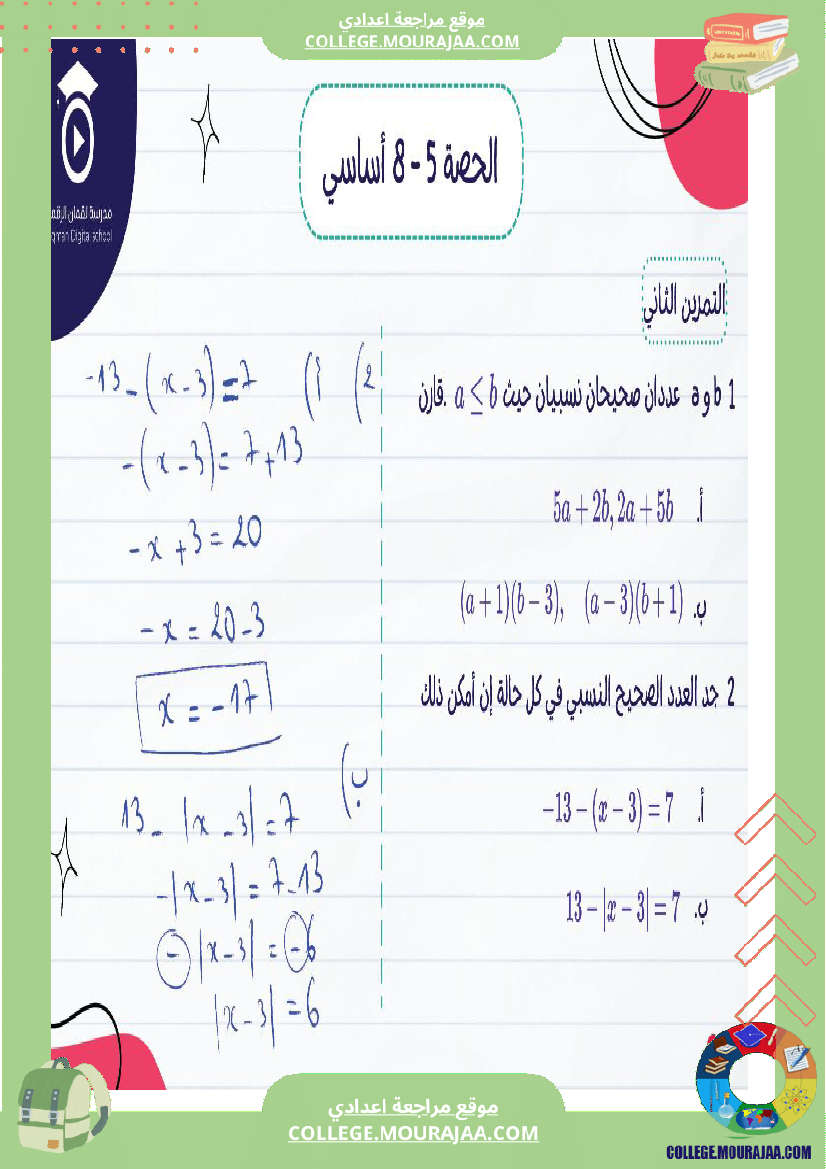 موقع مراجعة اعدادي
COLLEGE.MOURAJAA.COM
مدرسة لقمان الرقم
qman Digital school
الحصة 5 - 8 أساسي
التمرين الثاني
1 a و b عددان صحيحان نسبيان حيث a ≤ b .قارن
أ. 5a + 2b, 2a + 5b
ب. (a + 1)(b − 3), (a − 3)(b + 1)
2 جد العدد الصحيح النسبي في كل حالة إن أمكن ذلك
أ. −13 − (x − 3) = 7
ب. 13 − |x − 3| = 7
2) أ) -13 - (x - 3) = 7
-(x - 3) = 7 + 13
-x + 3 = 20
-x = 20 - 3
x = -17
ب)
13 - |x - 3| = 7
-|x - 3| = 7 - 13
-|x - 3| = -6
|x - 3| = 6
موقع مراجعة اعدادي
COLLEGE.MOURAJAA.COM
COLLEGE.MOURAJAA.COM